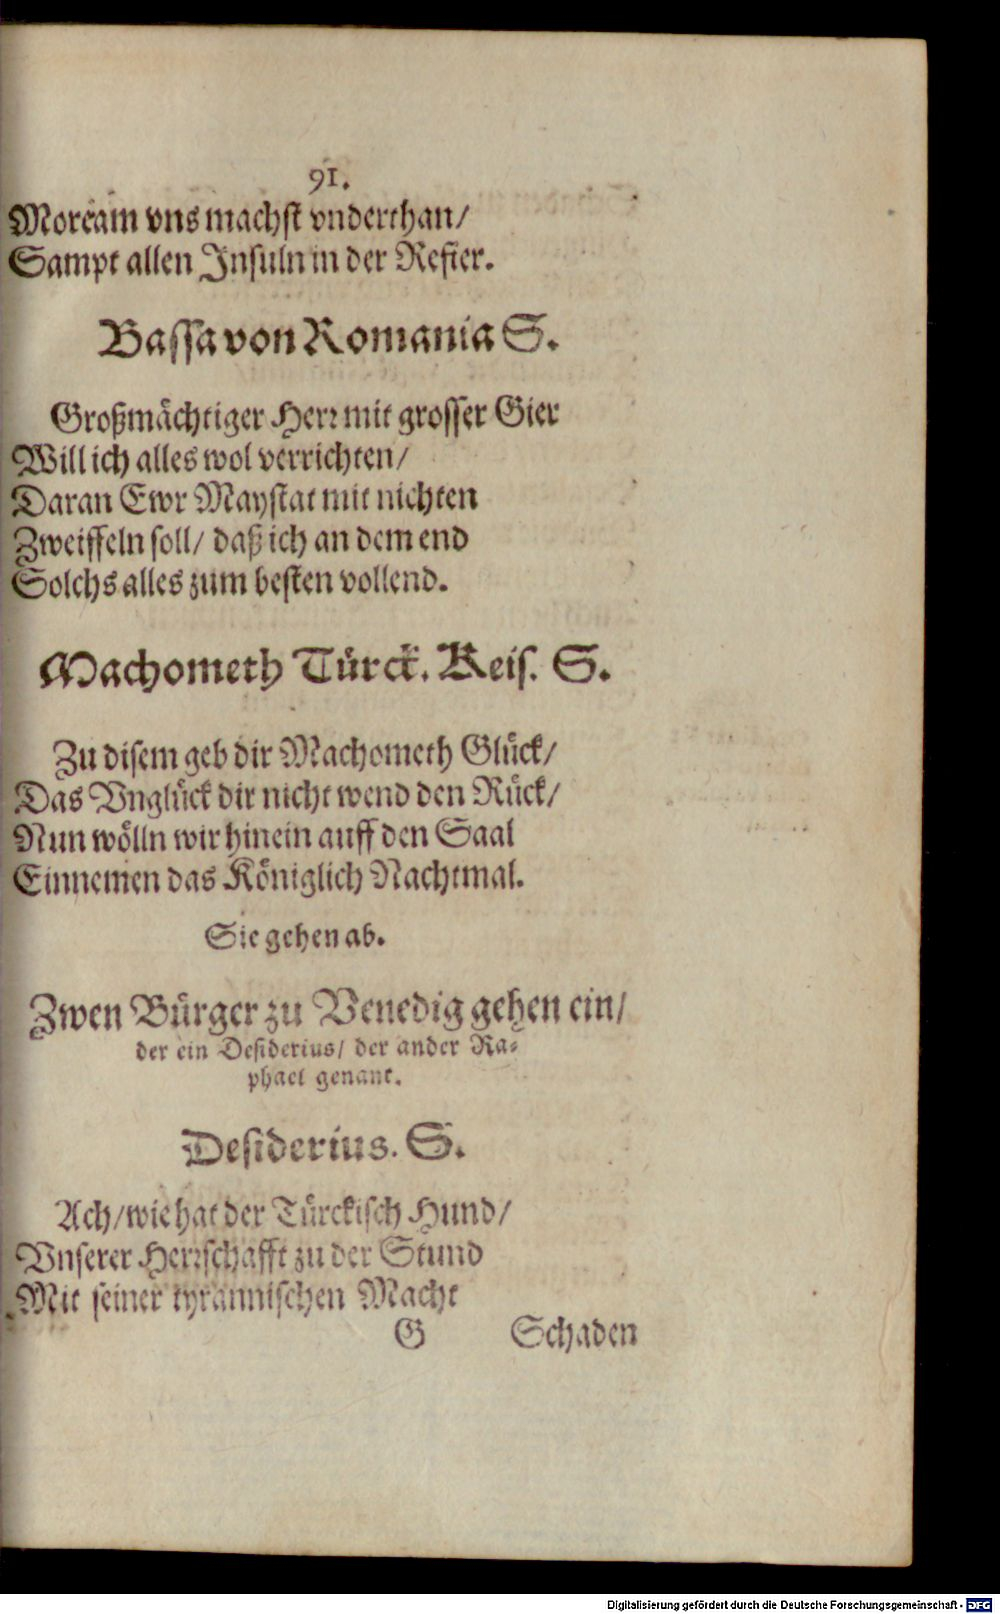 91.
Moream vns machst vnderthan/
Sampt allen Insuln in der Refier.
Bassa von Romania S.
Großmächtiger Herr mit grosser Gier
Will ich alles wol verrichten/
Daran Ewr Maystat mit nichten
Zweiffeln soll/ daß ich an dem end
Solchs alles zum besten vollend.
Machometh Türck. Keis. S.
Zu disem geb dir Machometh Glück/
Das Vnglück dir nicht wend den Rück/
Nun wölln wir hinein auff den Saal
Einnemen das Königlich Nachtmal.
Sie gehen ab.
Zwen Bürger zu Venedig gehen ein/
der ein Desiderius/ der ander Ra-
phael genant.
Desiderius. S.
Ach/ wie hat der Türckisch Hund/
Vnserer Herrschafft zu der Stund
Mit seiner tyrannischen Macht
G Schaden
Digitalisierung gefördert durch die Deutsche Forschungsgemeinschaft - DFG